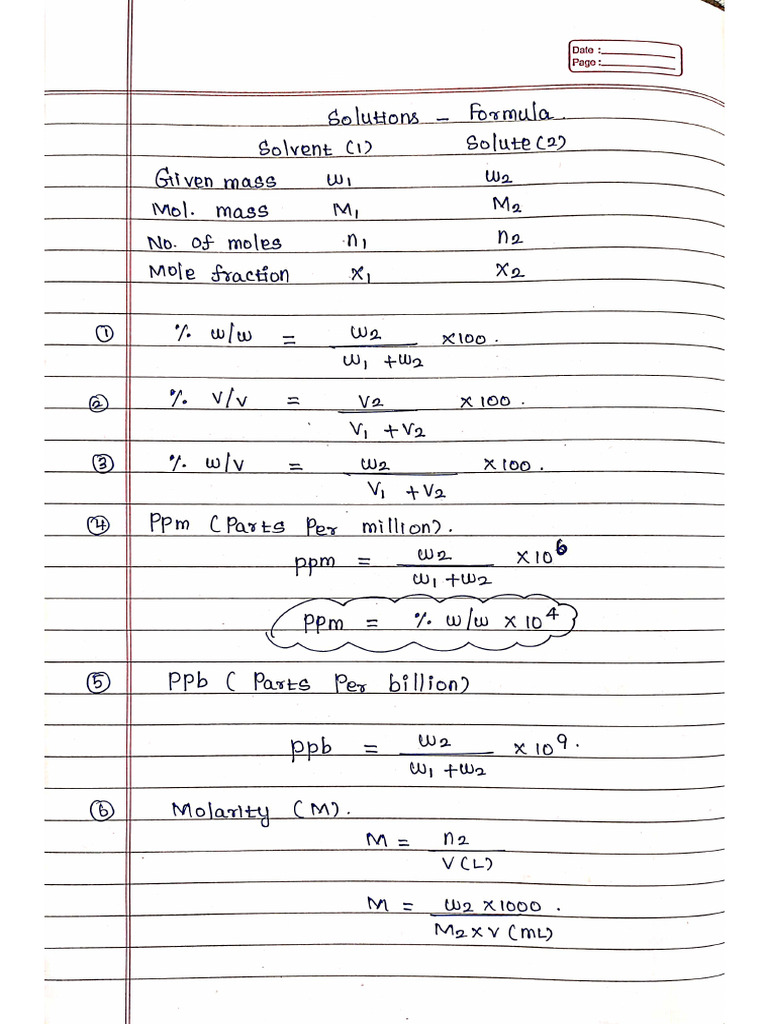 Date :
Page :
Solutions - Formula.
Solvent (1) Solute (2)
Given mass w₁ w₂
Mol. mass M₁ M₂
No. of moles n₁ n₂
Mole fraction x₁ x₂
① % w/w = w₂ / w₁ + w₂ × 100.
② % v/v = V₂ / V₁ + V₂ × 100.
③ % w/v = w₂ / V₁ + V₂ × 100.
④ PPm (Parts Per million).
ppm = w₂ / w₁ + w₂ × 10⁶
ppm = % w/w × 10⁴
⑤ PPb ( Parts Per billion)
ppb = w₂ / w₁ + w₂ × 10⁹.
⑥ Molarity (M).
M = n₂ / V(L)
M = w₂ × 1000 / M₂ × V (mL).